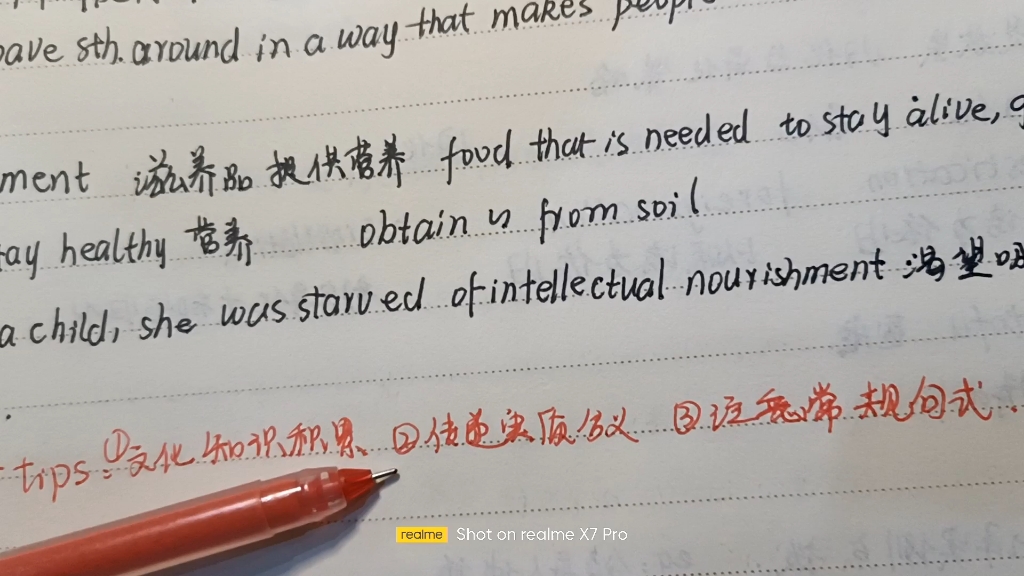 ave sth. around in a way that makes peop
ment 滋养品 提供营养 food that is needed to stay alive, g
tay healthy 营养 obtain n from soil
a child, she was starved of intellectual nourishment 渴望
tips: ①文化知识积累 ②传递实质含义 ③注意常规句式.
realme Shot on realme X7 Pro